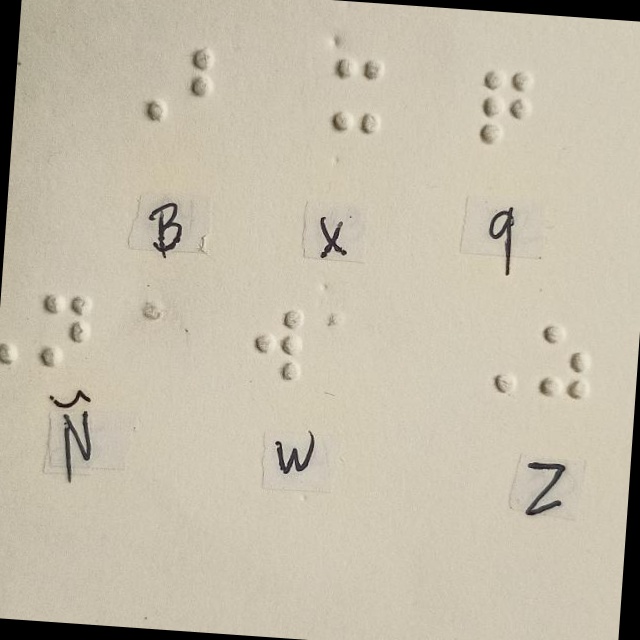 ⠠⠃ ⠭ ⠟
B x q
⠠⠝ ⠺ ⠠⠵
N̆ w Z